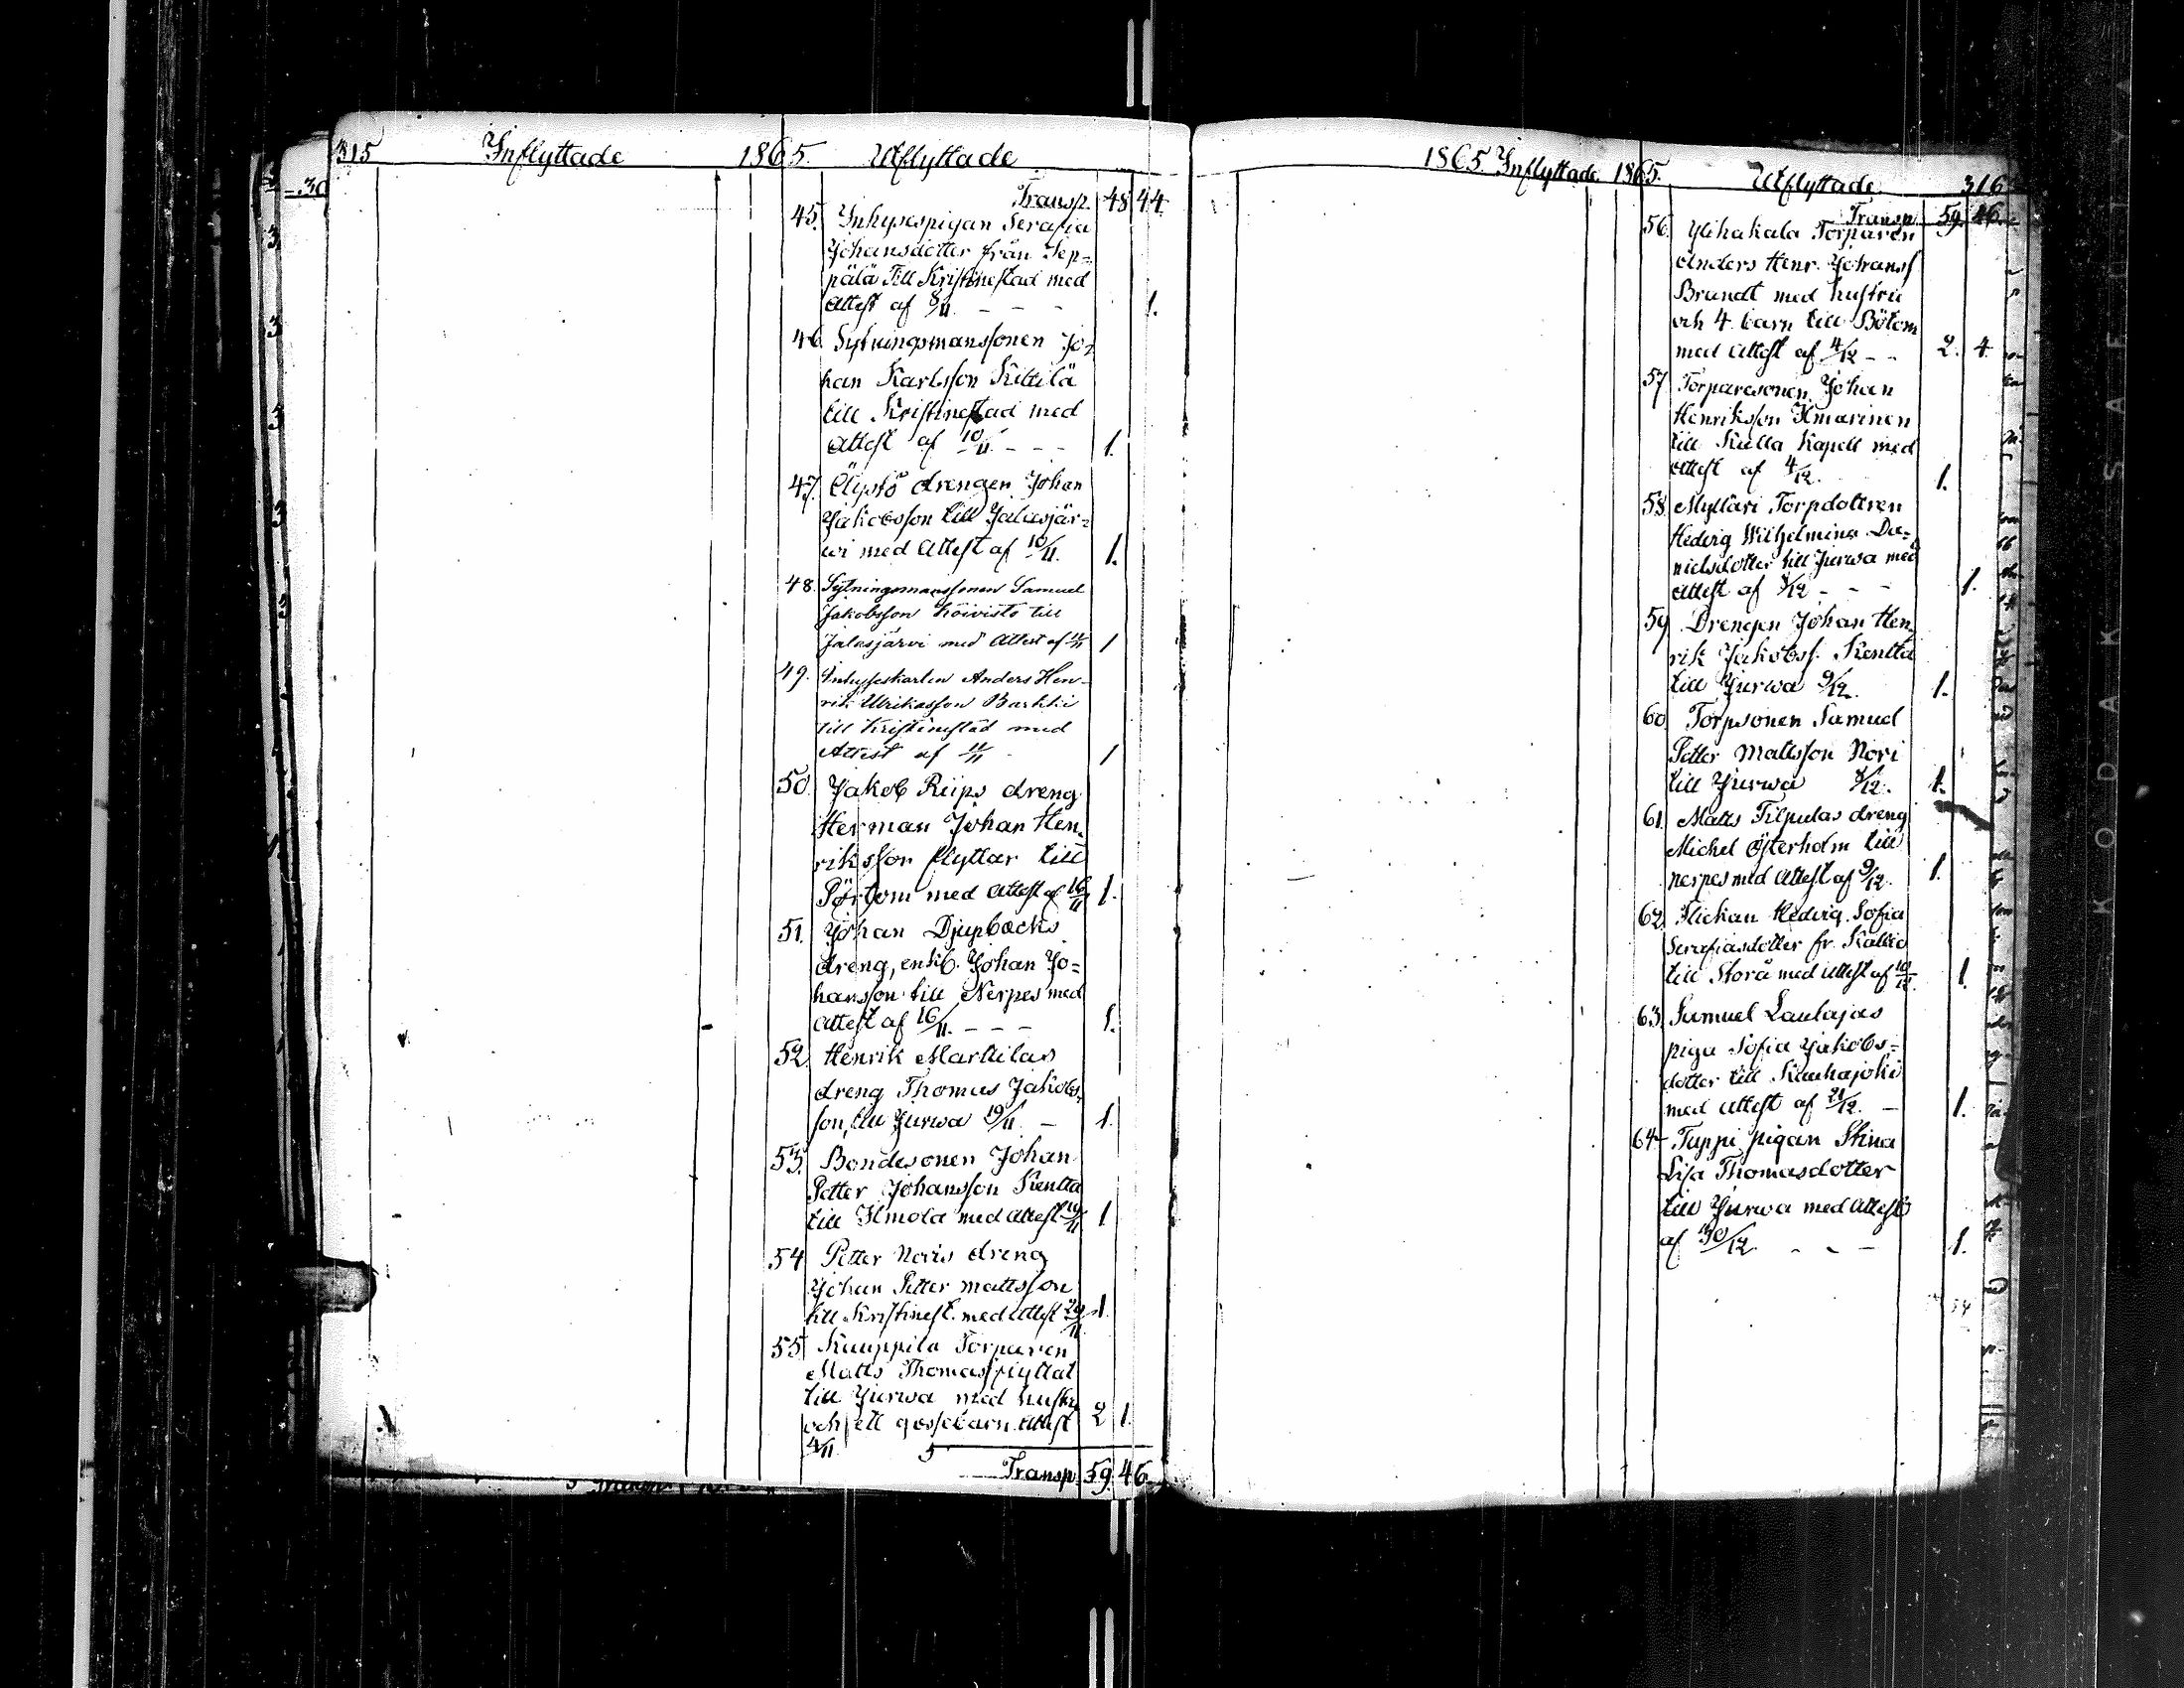 315 Inflyttade 1865. Utflyttade
Transp. 48 44
45. Inhysespigan Serafia
Johansdotter från Sep=
pälä Till Kristinestad med
Attest af 8/11. – – – 1.
46 Sytningsmanssonen Jo=
han Karlsson Kittilä
till Kristinestad med
Attest af 10/11. – – – 1.
47. drengen Johan
Jakobsson till Jalasjär=
wi med Attest af 10/11. 1.
48. Sytningsmanssonen Samuel
Jakobsson Koivisto till
Jalasjärvi med Attest af 11/11 1
49. Inhyseskarlen Anders Hen-
rik Ulrikasson
till Kristinestad med
Attest af 11/11 1
50. Jakob Riips dreng
Herman Johan Hen=
riksson flyttar till
Pörtom med Attest af 16/11 1.
51. Johan Djupbacks
dreng, enkl. Johan Jo=
hansson till Nerpes med
Attest af 16/11. – – – 1.
52. Henrik Marttilas
dreng Thomas Jakobs=
son, till Jurwa 19/11. – 1.
53. Bondesonen Johan
Petter Johansson Kentta
till Ilmola med Attest 19/11 1
54 Petter Noris dreng
Johan Petter Mattsson
till Kristinest. med Attest 29/11 1.
55 Kauppila Torparen
Matts Thomass flyttat
till Jurwa med hustru
och ett gossebarn Attest 2 1.
4/11.
Transp. 59. 46.
1865. Inflyttade 1865. Utflyttade 316
Transp. 59. 46
56. Ylihakala Torparen
Anders Henr. Johanss
Brandt med hustru
och 4 barn till Bötom
med Attest af 4/12 – – 2. 4.
57 Torparesonen Johan
Henriksson Ilmarinen
till Kapell med
Attest af 4/12. 1.
58. Mylläri Torpdottren
Hedvig Wilhelmina Da=
nielsdotter till Jurwa med
Attest af /12 – – – 1.
59 Drengen Johan Hen=
rik Jakobss. Kentta
till Jurwa 9/12. 1.
60 Torpsonen Samuel
Petter Mattsson Nori
till Jurwa 9/12. 1.
61. Matts Filpulas dreng
Michel Österholm till
Nerpes med Attest af 9/12. 1.
62. Flickan Hedvig Sofia
Serafiasdotter fr. Kallio
till Storå med Attest af 10/12. 1.
63. Samuel Laulajas
piga Sofia Jakobs=
dotter till Kauhajoki
med Attest af 21/12. – 1.
64 Tuppi pigan Stina
Lisa Thomasdotter
till Jurwa med Attest
af 30/12. – – – 1.
KODAK SAFETY